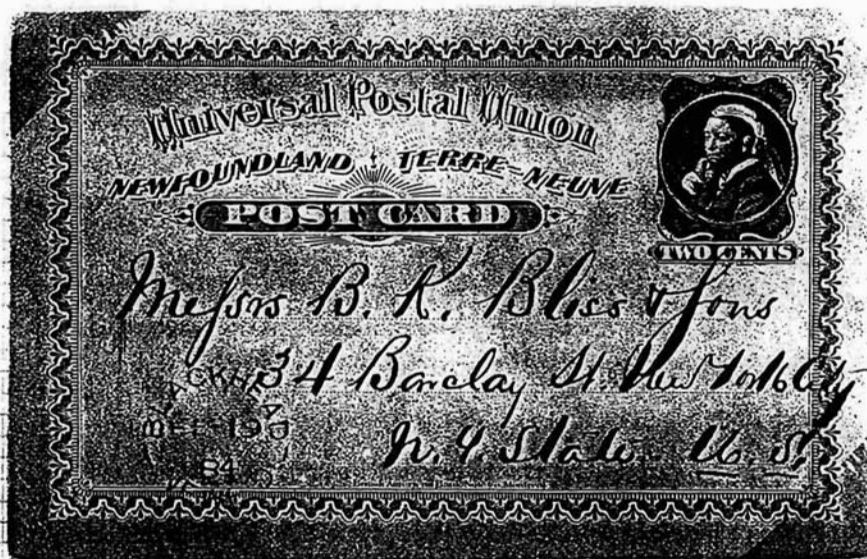 Universal Postal Union
NEWFOUNDLAND TERRE-NEUVE
POST CARD
TWO CENTS
Messrs B. K. Bliss & Sons
34 Barclay St. New York City
N. Y. State U. S.
BLACKHEAD
DEC 19
84